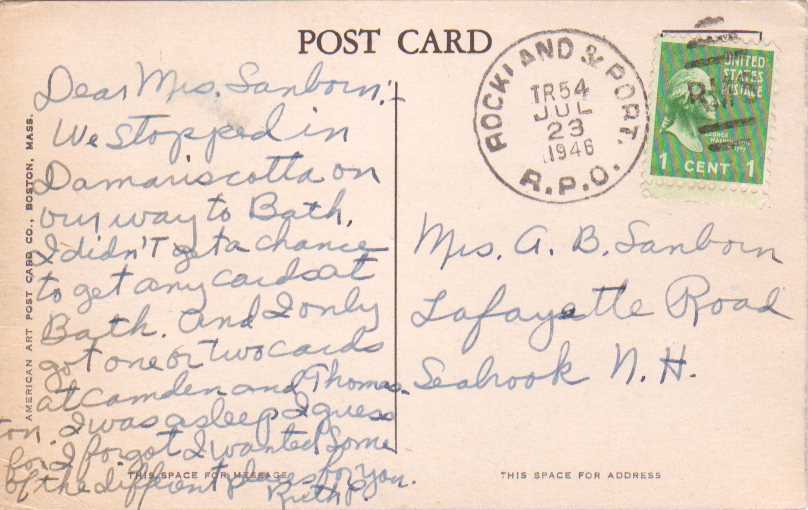 POST CARD
Dear Mrs. Sanborn:-
We stopped in
Damariscotta on
our way to Bath.
I didn't get a chance
to get any cards at
Bath. And I only
got one or two cards
at Camden and Thomas-
ton. I was asleep I guess
for I forgot I wanted some
of the different places for you.
Ruth P.
AMERICAN ART POST CARD CO., BOSTON, MASS.
THIS SPACE FOR MESSAGE
ROCKLAND & PORT.
TR54
JUL
23
1946
R.P.O.
UNITED
STATES
POSTAGE
RMS
GEORGE
WASHINGTON
1 CENT 1
Mrs. A. B. Sanborn
Lafayette Road
Seabrook N. H.
THIS SPACE FOR ADDRESS